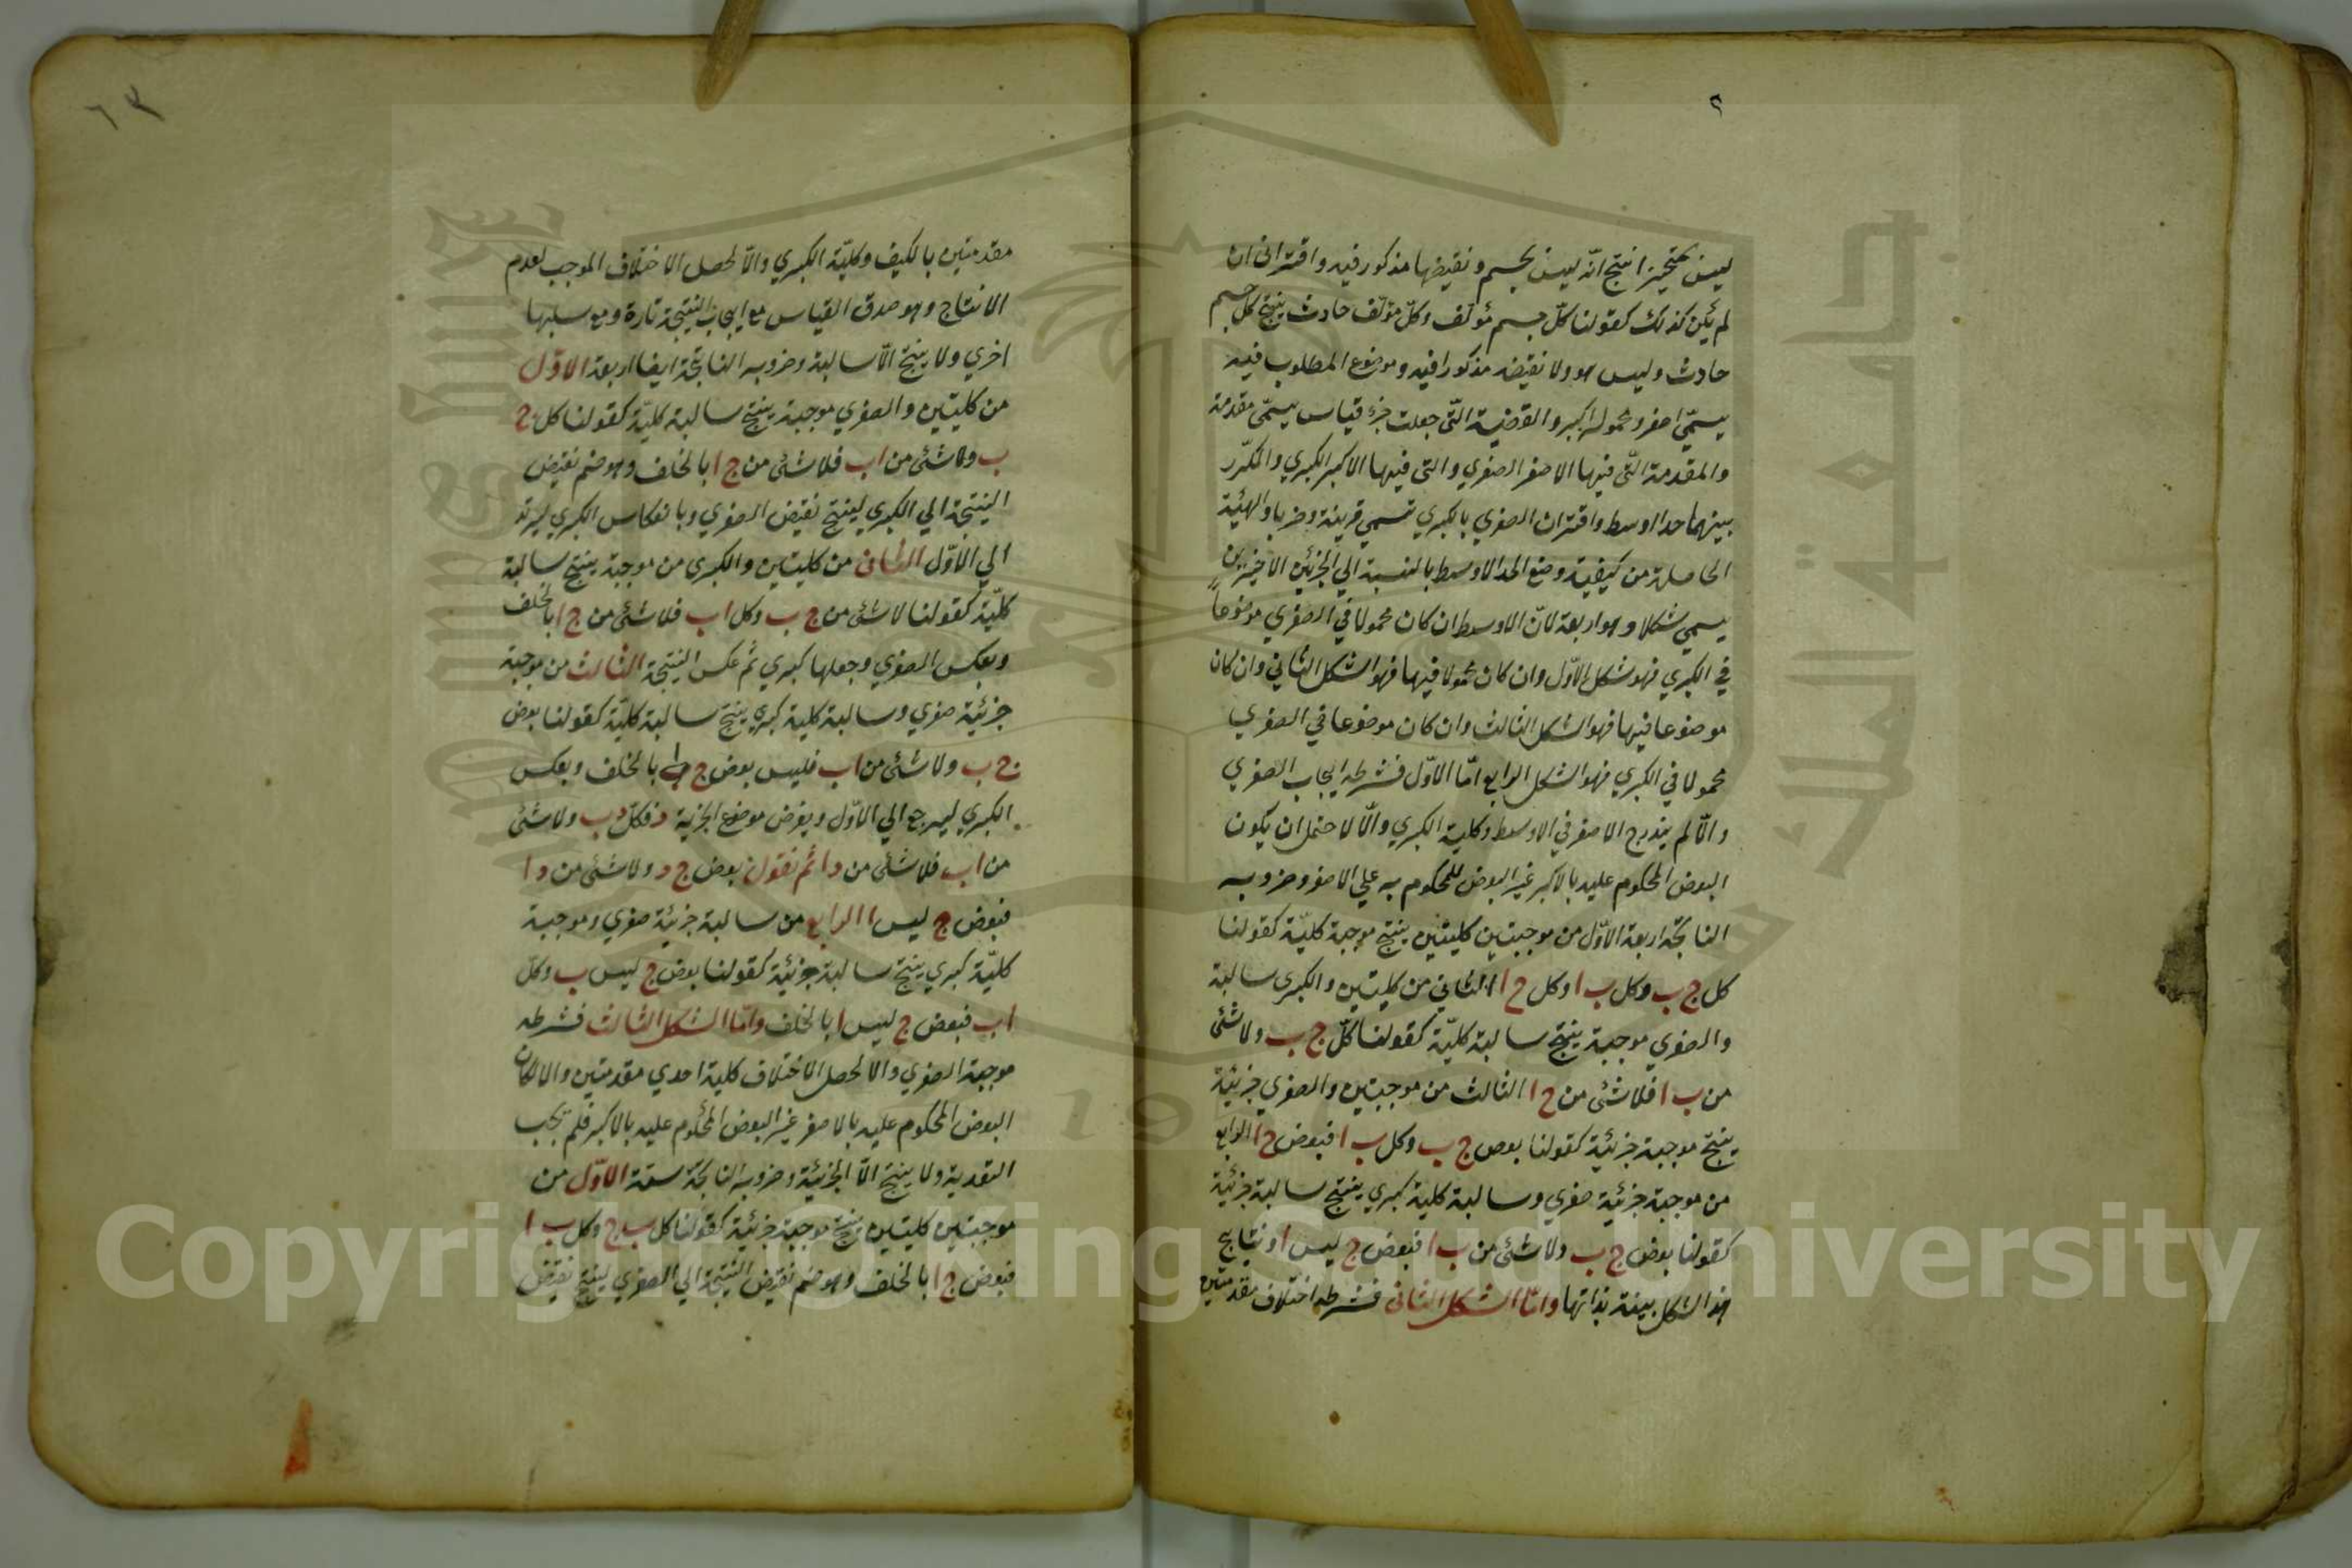 ٢
ليس بمتحيز انتج انّه ليس بجسم ونقيضها مذكور فيه واقتراني ان
لم يكن كذلك كقولنا كلّ جسم مؤلّف وكلّ مؤلّف حادث ينتج كل جسم
حادث وليس هو ولا نقيضه مذكورا فيه وموضوع المطلوب فيه
يسمّي اصغر ومحموله اكبر والقضية الّتي جعلت جزء قياس يسمّي مقدمة
والمقدمة الّتي فيها الاصغر الصغري والتي فيها الاكبر الكبري والمكرّر
بينهما حدا اوسط واقتران الصغري بالكبري تسمي قرينة وضربا والهيئة
الحاصلة من كيفية وضع الحد الاوسط بالنسبة الي الجزئين الاخيرين
يسمي شكلا وهو اربعة لانّ الاوسط ان كان محمولا في الصغري موضوعاً
في الكبري فهو شكل الاوّل وان كان محمولا فيهما فهو الشكل الثاني وان كان
موضوعا فيها فهو الشكل الثالث وان كان موضوعا في الصغري
محمولا في الكبري فهو الشكل الرابع امّا الاوّل فشرطه ايجاب الصغري
والّا لم يندرج الاصغر في الاوسط وكلية الكبري والّا لاحتمل ان يكون
البعض المحكوم عليه بالاكبر غير البعض للمحكوم به علي الاصغر وضروبه
الناتجة اربعة الاوّل من موجبتين كليتين ينتج موجبة كليّة كقولنا
كل ج ب وكل ب ا وكل ج ا الثاني من كليتين والكبري سالبة
والصغري موجبة ينتج سالبة كليّة كقولنا كلّ ج ب ولا شئ
من ب ا فلا شئ من ج ا الثالث من موجبتين والصغري جزئيّة
ينتج موجبة جزئيّة كقولنا بعض ج ب وكل ب ا فبعض ج ا الرابع
من موجبة جزئيّة صغري وسالبة كلية كبري ينتج سالبة جزئيّة
كقولنا بعض ج ب ولا شئ من ب ا فبعض ج ليس ا ونتايج
هذا الشكل بينة بذاتها وامّا الشكل الثاني فشرطه اختلاف مقدمتين
٦٣
مقدمتين بالكيف وكليّة الكبري والّا لحصل الاختلاف الموجب لعدم
الانتاج وهو صدق القياس مع ايجاب النتيجة تارة ومع سلبها
اخري ولا ينتج الّا سالبة وضروبه الناتجة ايضا اربعة الاوّل
من كليتين والصغري موجبة ينتج سالبة كليّة كقولنا كل ج
ب ولا شئ من ا ب فلا شئ من ج ا بالخلف وهو ضم نقيض
النتيجة الي الكبري لينتج نقيض الصغري وبانعكاس الكبري ليرتد
الي الاوّل الثاني من كليتين والكبري من موجبة ينتج سالبة
كليّة كقولنا لا شئ من ج ب وكل ا ب فلا شئ من ج ا بالخلف
وبعكس الصغري وجعلها كبري ثم عكس النتيجة الثالث من موجبة
جزئيّة صغري وسالبة كلية كبري ينتج سالبة كليّة كقولنا بعض
ج ب ولا شئ من ا ب فليس بعض ج بالخلف وبعكس
الكبري ليرجع الي الاوّل وبفرض موضوع الجزئية د فكلّ د ب ولا شئ
من ا ب فلا شئ من د ا ثم نقول بعض ج د ولا شئ من د ا
فبعض ج ليس ا الرابع من سالبة جزئيّة صغري وموجبة
كليّة كبري ينتج سالبة جزئيّة كقولنا بعض ج ليس ب وكلّ
ا ب فبعض ج ليس ا بالخلف وامّا الشكل الثالث فشرطه
موجبة الصغري والا لحصل الاختلاف كلية احدي مقدمتين والا لكان
البعض المحكوم عليه بالاصغر غير البعض المحكوم عليه بالاكبر فلم تجب
التعدية ولا ينتج الّا الجزئيّة وضروبه الناتجة ستة الاوّل من
موجبتين كليتين ينتج موجبة جزئيّة كقولنا كل ب ج وكل ب ا
فبعض ج ا بالخلف وهو ضم نقيض النتيجة الي الصغري لينتج نقيض
Copyright © King Saud University
جامعة الملك سعود
1957